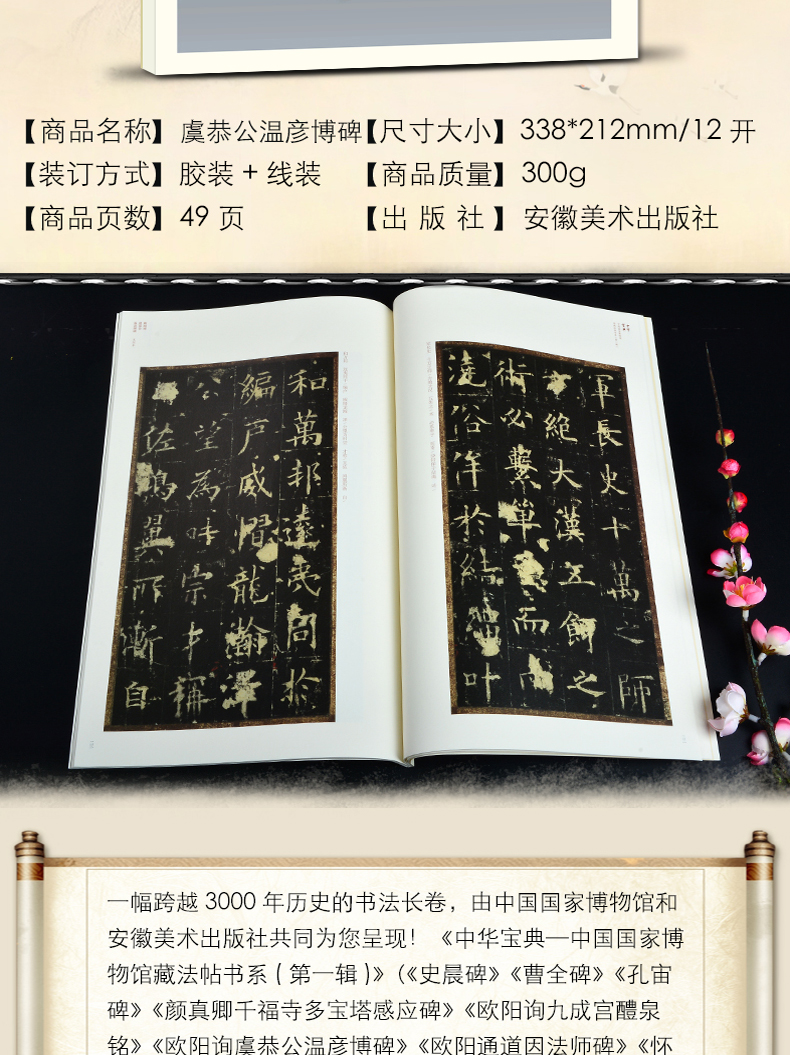 【商品名称】 虞恭公温彦博碑【尺寸大小】 338*212mm/12 开
【装订方式】 胶装 + 线装 【商品质量】 300g
【商品页数】 49 页 【出 版 社 】 安徽美术出版社
軍長史十萬之師
絕大漢五餌之
術必繫單而
澆俗侔於結叶
和萬邦達夷同於
編戶威慴龍瀚澤
公望為時宗才稱
佐鳴翼所漸自
一幅跨越 3000 年历史的书法长卷，由中国国家博物馆和
安徽美术出版社共同为您呈现！《中华宝典—中国国家博
物馆藏法帖书系 ( 第一辑 )》(《史晨碑》《曹全碑》《孔宙
碑》《颜真卿千福寺多宝塔感应碑》《欧阳询九成宫醴泉
铭》《欧阳询虞恭公温彦博碑》《欧阳通道因法师碑》《怀